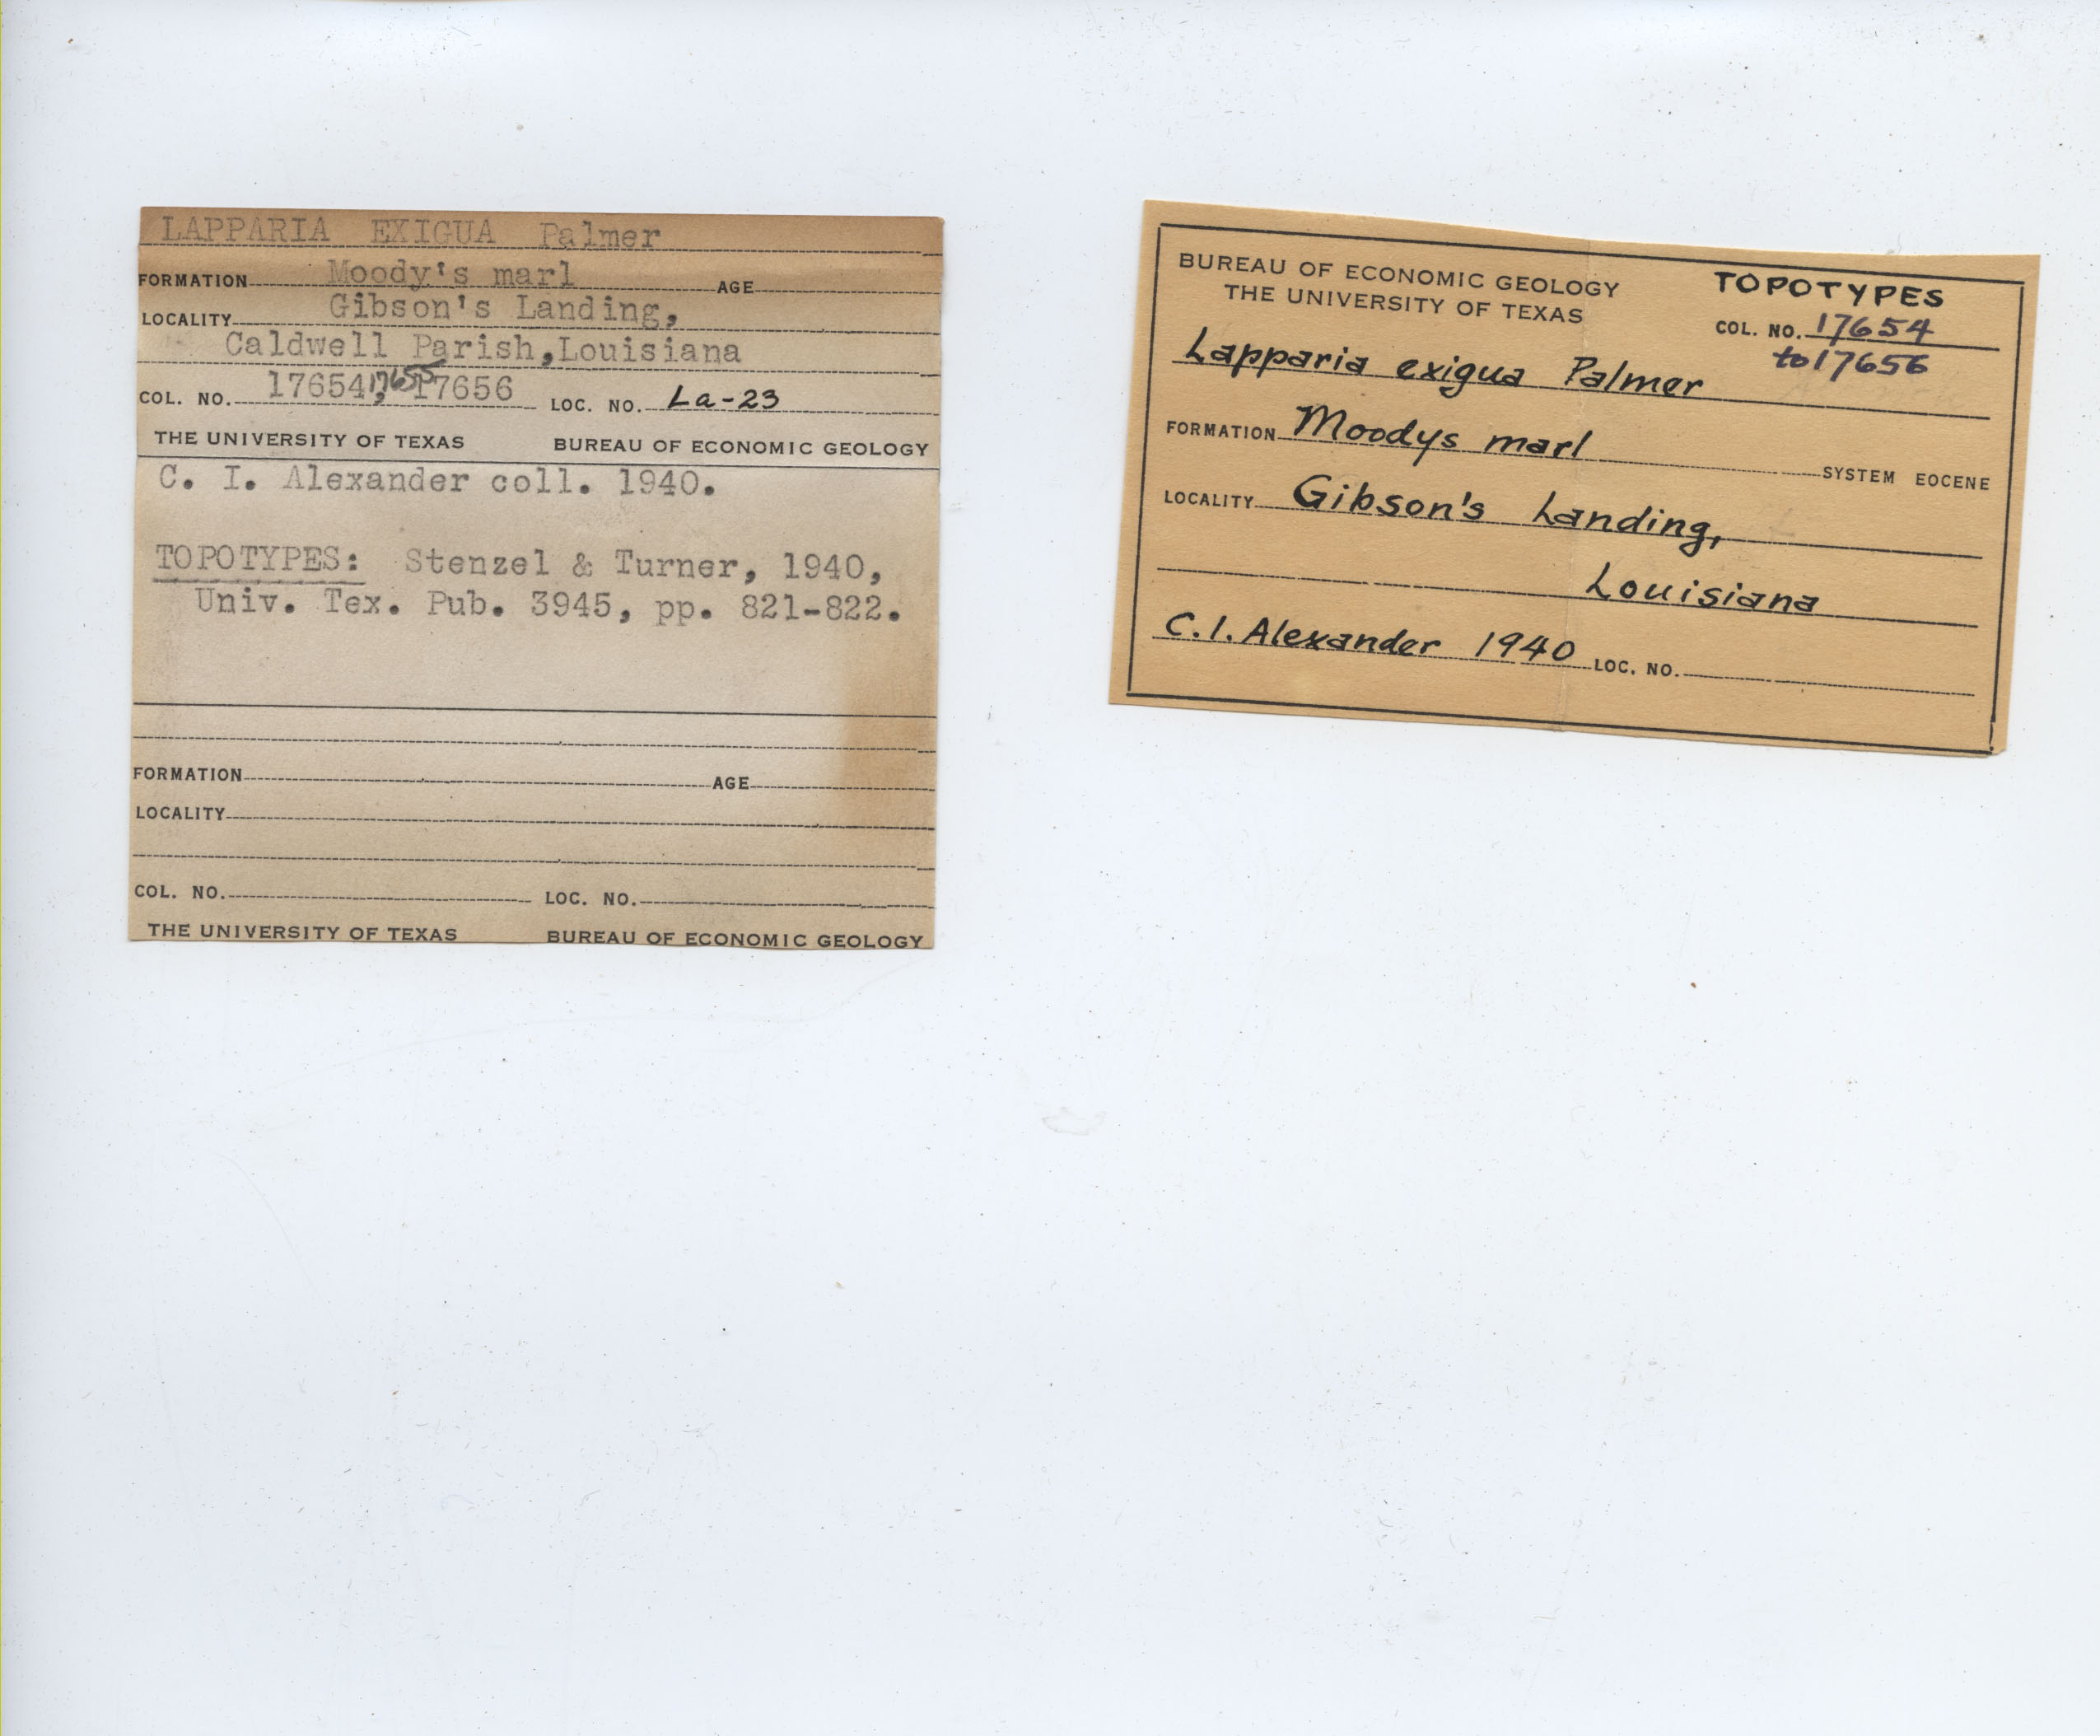 LAPPARIA EXIGUA Palmer
FORMATION Moody's marl AGE
LOCALITY Gibson's Landing,
Caldwell Parish, Louisiana
COL. NO. 17654, 17655 17656 LOC. NO. La-23
THE UNIVERSITY OF TEXAS BUREAU OF ECONOMIC GEOLOGY
C. I. Alexander coll. 1940.
TOPOTYPES: Stenzel & Turner, 1940,
Univ. Tex. Pub. 3945, pp. 821-822.
FORMATION AGE
LOCALITY
COL. NO. LOC. NO.
THE UNIVERSITY OF TEXAS BUREAU OF ECONOMIC GEOLOGY
BUREAU OF ECONOMIC GEOLOGY
THE UNIVERSITY OF TEXAS
TOPOTYPES
COL. NO. 17654
to 17656
Lapparia exigua Palmer
FORMATION Moodys marl SYSTEM EOCENE
LOCALITY Gibson's Landing,
Louisiana
C. I. Alexander 1940 LOC. NO.